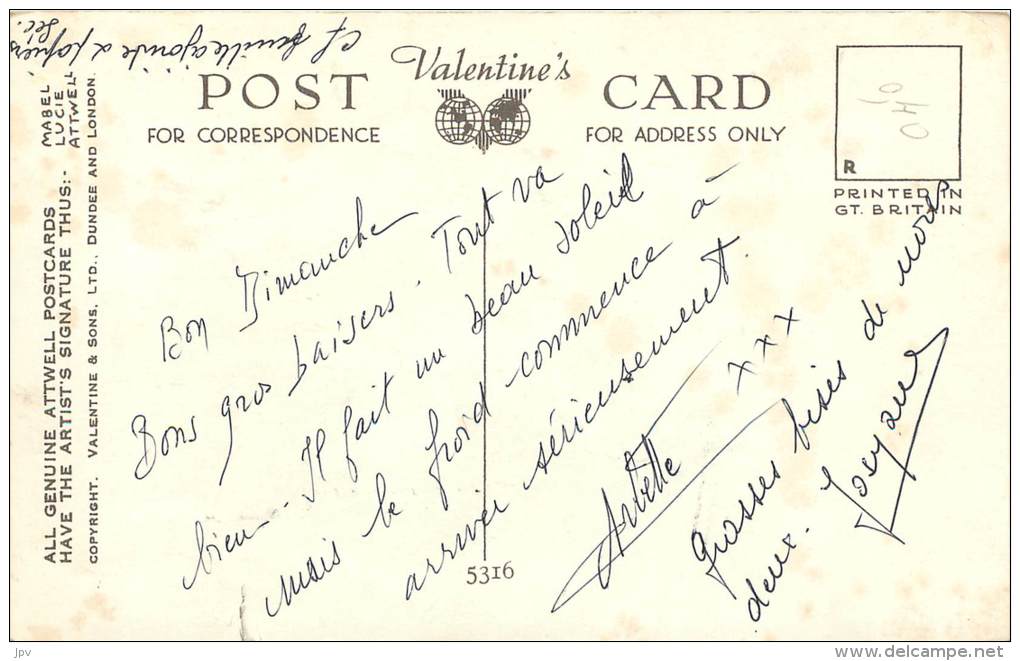 Cf feuille ajointe à papiers
Sec.
ALL GENUINE ATTWELL POSTCARDS
HAVE THE ARTIST'S SIGNATURE THUS:-
MABEL
LUCIE
ATTWELL
COPYRIGHT. VALENTINE & SONS, LTD., DUNDEE AND LONDON.
Valentine's
POST CARD
FOR CORRESPONDENCE
FOR ADDRESS ONLY
R
PRINTED IN
GT. BRITAIN
Bon Dimanche
Bons gros baisers. Tout va
bien. Il fait un beau soleil
mais le froid commence à
arriver sérieusement.
Arlette
x x x
Grosses bises de nous
deux.
5316
delcampe.net
JPV